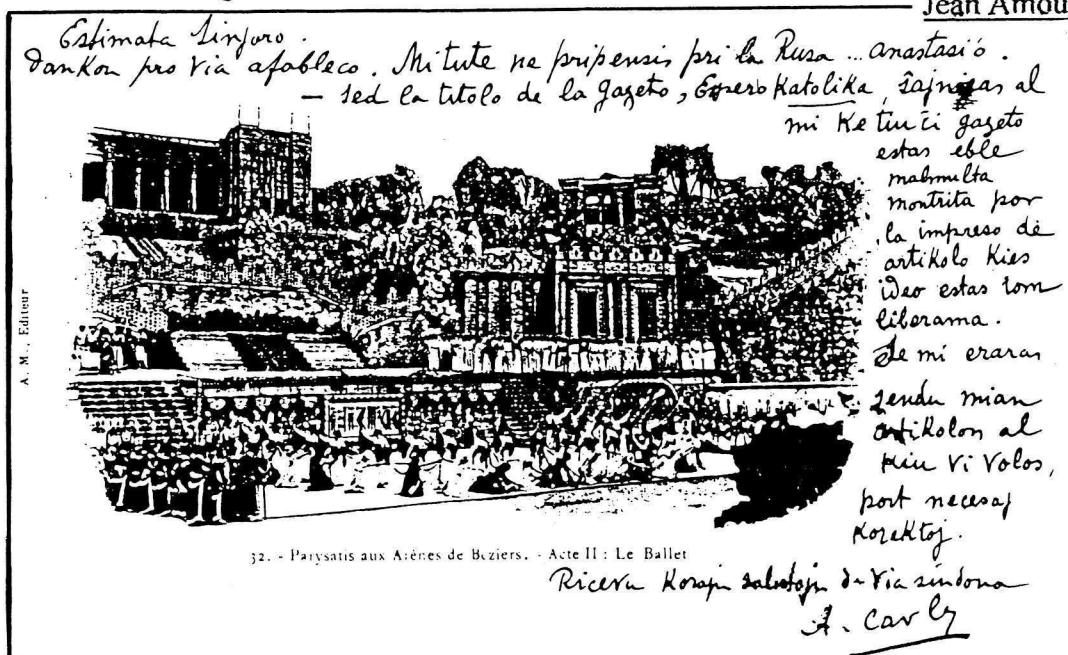 Jean Amou
Estimata Sinjoro.
Dankon pro Via afableco. Mi tute ne pripensis pri la Rusa ... anastasio.
— sed la titolo de la gazeto, Espero Katolika, ŝajnigas al
mi ke tiu ĉi gazeto
estas eble
malmulta
montrita por
la impreso de
artikolo Kies
ideo estas iom
liberama.
Se mi eraras
sendu mian
artikolon al
kiu Vi Volos,
post necesaj
Korektoj.
A. M., Editeur
32. - Parysatis aux Arènes de Beziers. - Acte II : Le Ballet
Ricevu Korajn salutojn de Via sindona
A. Carly